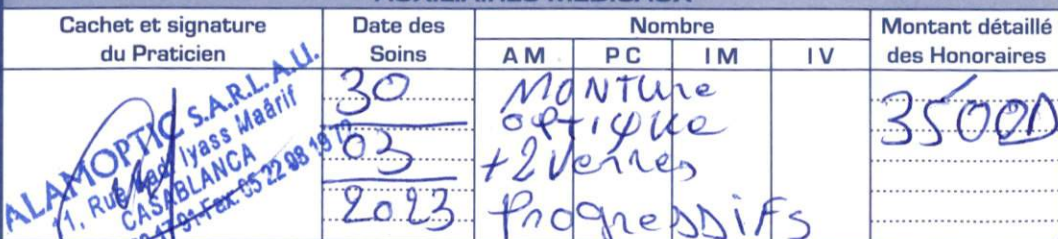 Cachet et signature
du Praticien
Date des
Soins
Nombre
AM PC IM IV
Montant détaillé
des Honoraires
ALAMOPTIC S.A.R.L. A.U.
11, Rue Iyass Maârif
CASABLANCA
Fax: 05 22 98 19 72
30
03
2023
MONTUre
optique
+2 Verres
Progressifs
3500D